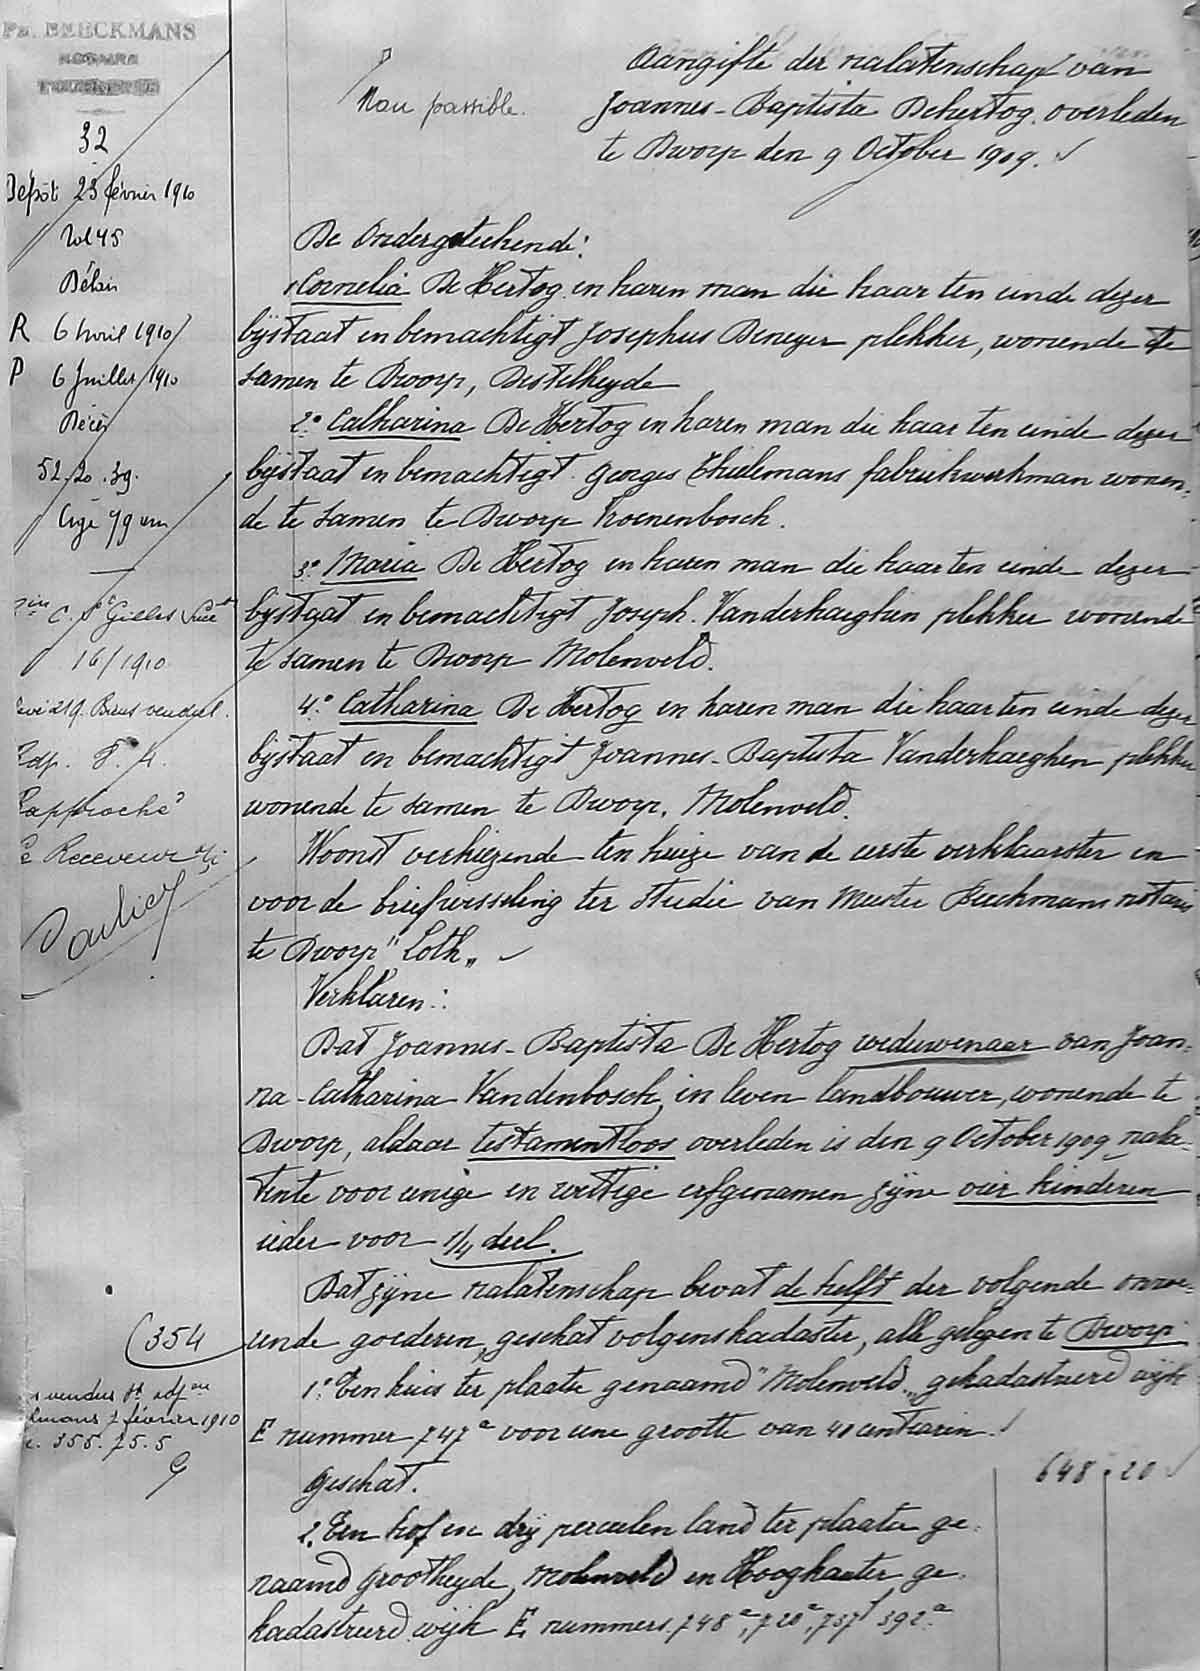 PH. BEECKMANS
NOTAIRE
32
Dépôt 23 février 1910
Vol 45
Délais
R 6 Avril 1910
P 6 Juillet 1910
Décès
52.20.39.
âge 79 ans
C. St Gilles Succt
16/1910
Biens vendus.
F. 4.
Rapproché
Le Receveur
Non passible.
Aangifte der nalatenschap van
Joannes-Baptista Dehertog, overleden
te Dworp den 9 October 1909.
De Ondergeteekende:
1 Cornelia De Hertog en haren man die haar ten einde dezer
bijstaat en bemachtigt Josephus Deneyer plekker, wonende te
samen te Dworp, Destelheyde
2.° Catharina De Hertog en haren man die haar ten einde dezer
bijstaat en bemachtigt Georges Thielemans fabriekwerkman wonen-
de te samen te Dworp Kroenenbosch.
3.° Maria De Hertog en haren man die haar ten einde dezer
bijstaat en bemachtigt Joseph Vanderhaeghen plekker wonende
te samen te Dworp Molenveld.
4.° Catharina De Hertog en haren man die haar ten einde dezer
bijstaat en bemachtigt Joannes-Baptista Vanderhaeghen plekker
wonende te samen te Dworp, Molenveld.
Woonst verkiezende ten huize van de eerste verklaarster en
voor de briefwisseling ter studie van Meester Beeckmans notaris
te Dworp "Loth„
Verklaren:
Dat Joannes-Baptista De Hertog weduwenaar van Joan-
na-Catharina Vandenbosch in leven landbouwer, wonende te
Dworp, aldaar testamentloos overleden is den 9 October 1909 nala-
tende voor eenige en wettige erfgenamen zijne vier kinderen
ieder voor 1/4 deel.
Dat zijne nalatenschap bevat de helft der volgende onroe-
rende goederen, geschat volgens kadaster, alle gelegen te Dworp
354
vendus
7 février 1910
355.75.5
1.° Een huis ter plaatse genaamd "Molenveld„ gekadastreerd wijk
E nummer 747a voor eene grootte van 40 centiaren.
Geschat. 648.20
2. Een hof en drij perceelen land ter plaatse ge-
naamd Grootheyde, Molenveld en Hooghauter ge-
kadastreerd wijk E nummers 748a, 720a, 737f 392a